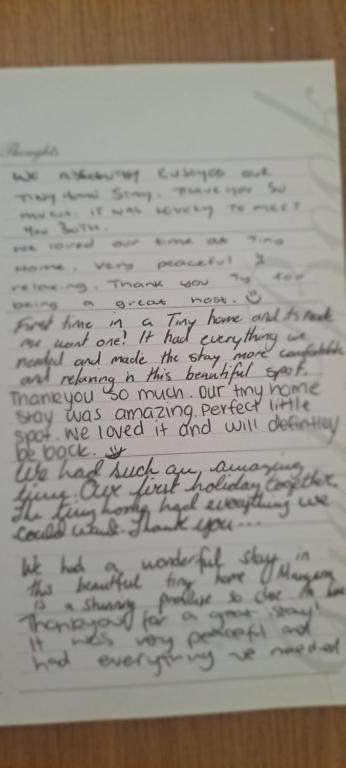 Thoughts
We absolutely enjoyed our
Tiny Home Stay. Thank you so
much. It was lovely to meet
you both.
We loved our time at Tiny
Home. Very peaceful &
relaxing. Thank you Ty for
being a great host. ☺
First time in a Tiny home and its made
me want one! It had everything we
needed and made the stay more comfortable
and relaxing in this beautiful spot.
Thankyou so much. Our tiny home
stay was amazing. Perfect little
spot. We loved it and will defintley
be back.
We had such an amazing
time. Our first holiday together.
The tiny home had everything we
could want. Thank you...
We had a wonderful stay in
this beautiful tiny home
is a stunning paradise so close to home
Thankyou for a great stay!
It was very peaceful and
had everything we needed